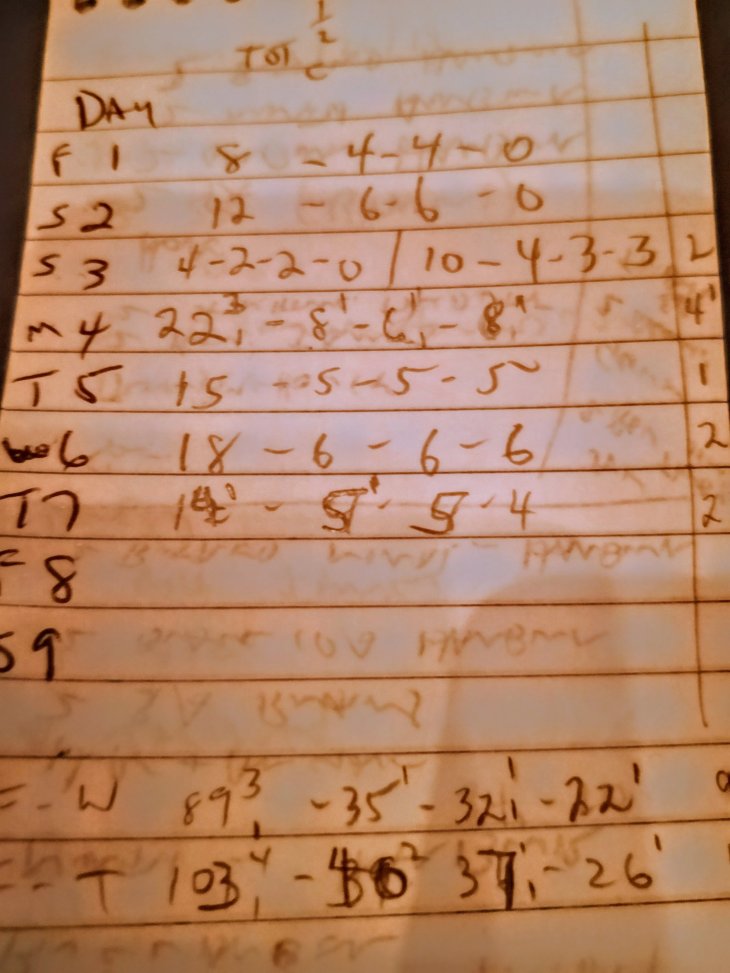 1
TOT 2
C
DAY
F 1 8 - 4 - 4 - 0
S 2 12 - 6 - 6 - 0
S 3 4-2-2-0 / 10-4-3-3 2
M 4 22³₁ - 8¹ - 6¹₁ - 8¹ 4¹
T 5 15 - 5 - 5 - 5 1
6 18 - 6 - 6 - 6 2
T 7 14¹ - 5¹ - 5 - 4 2
F 8
S 9
F - W 89³₁ - 35¹ - 32¹₁ - 22¹
F - T 103⁴₁ - 40² 37¹₁ - 26¹